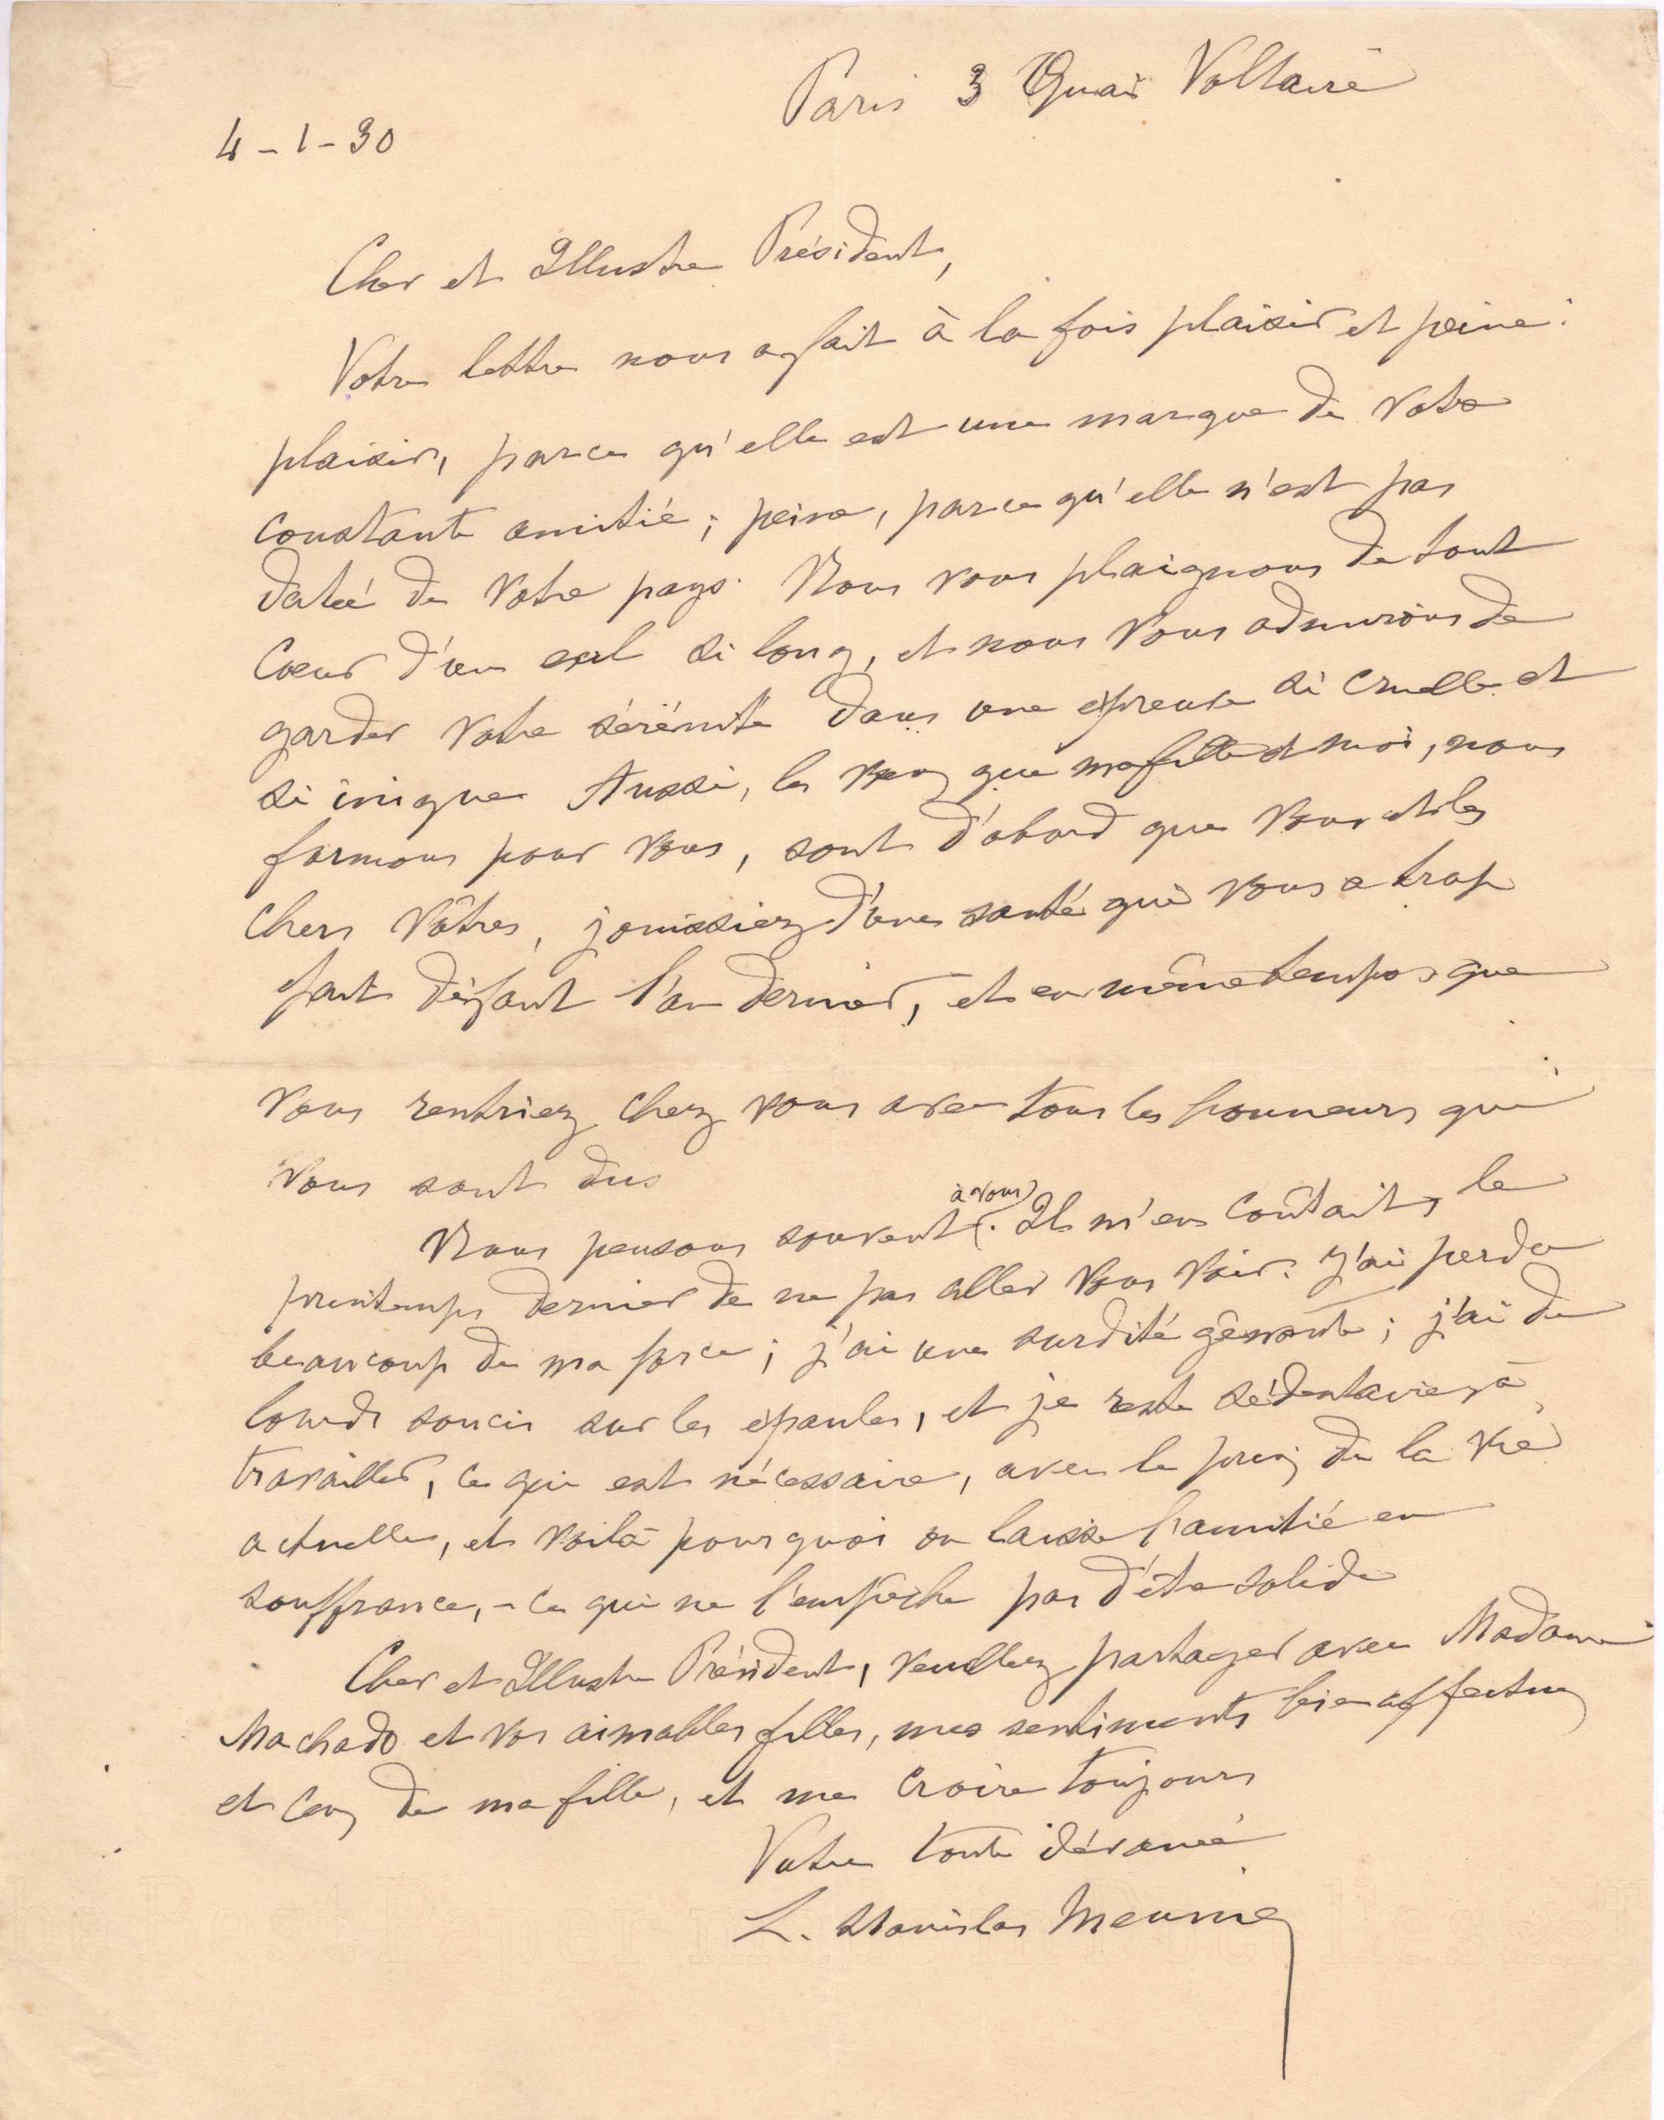 Paris 3 Quai Voltaire
4-1-30
Cher et Illustre Président,
Votre lettre nous a fait à la fois plaisir et peine :
plaisir, parce qu'elle est une marque de votre
constante amitié ; peine, parce qu'elle n'est pas
datée de votre pays. Nous vous plaignons de tout
cœur d'un exil si long, et nous vous admirons de
garder votre sérénité dans une épreuve si cruelle et
si inique Aussi, les vœux que ma fille et moi, nous
formons pour vous, sont d'abord que vous et les
chers vôtres, jouissiez d'une santé qui vous a trop
fait défaut l'an dernier, et en même temps que
vous rentriez chez vous avec tous les honneurs qui
vous sont dus
Nous pensons souvent à vous. Il m'en coûtait, le
printemps dernier de ne pas aller vous voir. J'ai perdu
beaucoup de ma force ; j'ai une surdité gênante ; j'ai de
lourds soucis sur les épaules, et je reste sédentaire, à
travailler, ce qui est nécessaire, avec le prix de la vie
actuelle, et voilà pourquoi on laisse l'amitié en
souffrance, - ce qui ne l'empêche pas d'être solide
Cher et Illustre Président, veuillez partager avec Madame
Machado et vos aimables filles, mes sentiments bien affectueux
et ceux de ma fille, et me croire toujours
Votre toute dévouée
L. Stanislas Meunier